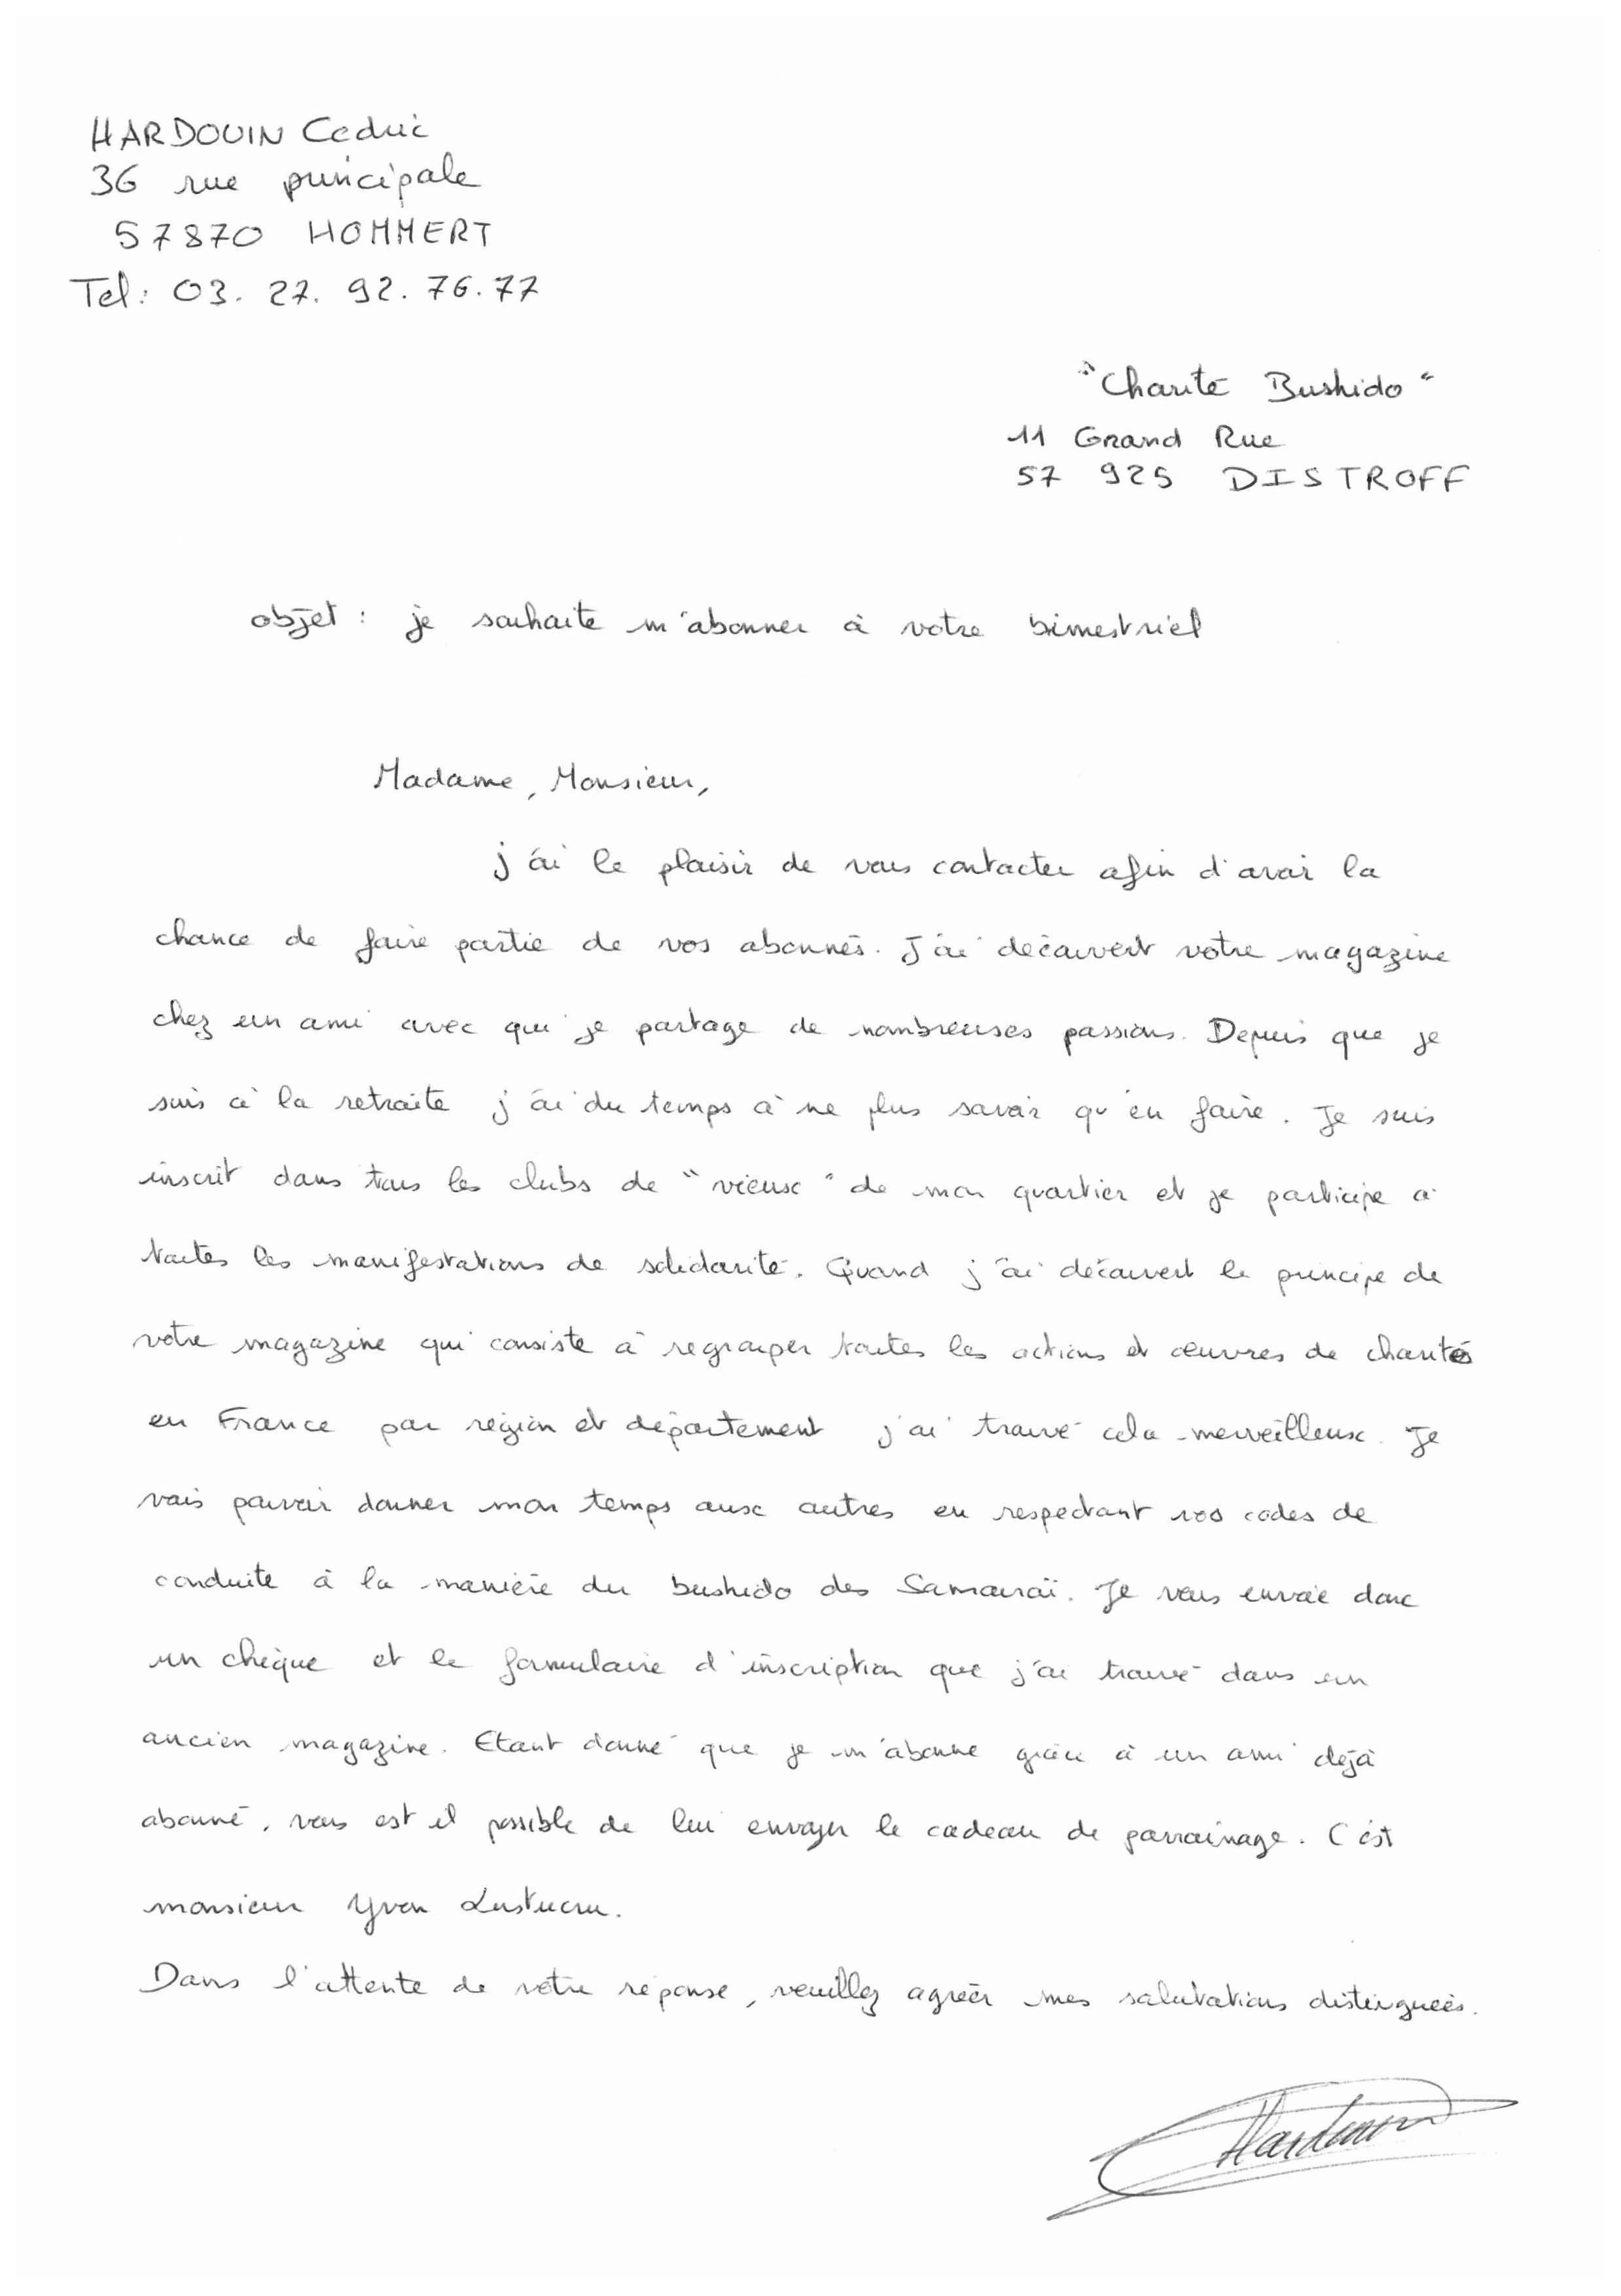 HARDOUIN Cedric
36 rue principale
57870 HOMMERT
Tel: 03. 27. 92. 76. 77
"Charité Bushido"
11 Grand Rue
57 925 DISTROFF
objet : je souhaite m'abonner à votre bimestriel
Madame, Monsieur,
j'ai le plaisir de vous contacter afin d'avoir la
chance de faire partie de vos abonnés. J'ai découvert votre magazine
chez un ami avec qui je partage de nombreuses passions. Depuis que je
suis à la retraite j'ai du temps à ne plus savoir qu'en faire. Je suis
inscrit dans tous les clubs de "vieux" de mon quartier et je participe à
toutes les manifestations de solidarité. Quand j'ai découvert le principe de
votre magazine qui consiste à regrouper toutes les actions et œuvres de charités
en France par région et département j'ai trouvé cela merveilleux. Je
vais pouvoir donner mon temps aux autres en respectant vos codes de
conduite à la manière du bushido des Samouraï. Je vous envoie donc
un chèque et le formulaire d'inscription que j'ai trouvé dans un
ancien magazine. Etant donné que je m'abonne grâce à un ami déjà
abonné, vous est il possible de lui envoyer le cadeau de parrainage. C'est
monsieur Yvon Lustucru.
Dans l'attente de votre réponse, veuillez agréer mes salutations distinguées.
Hardouin